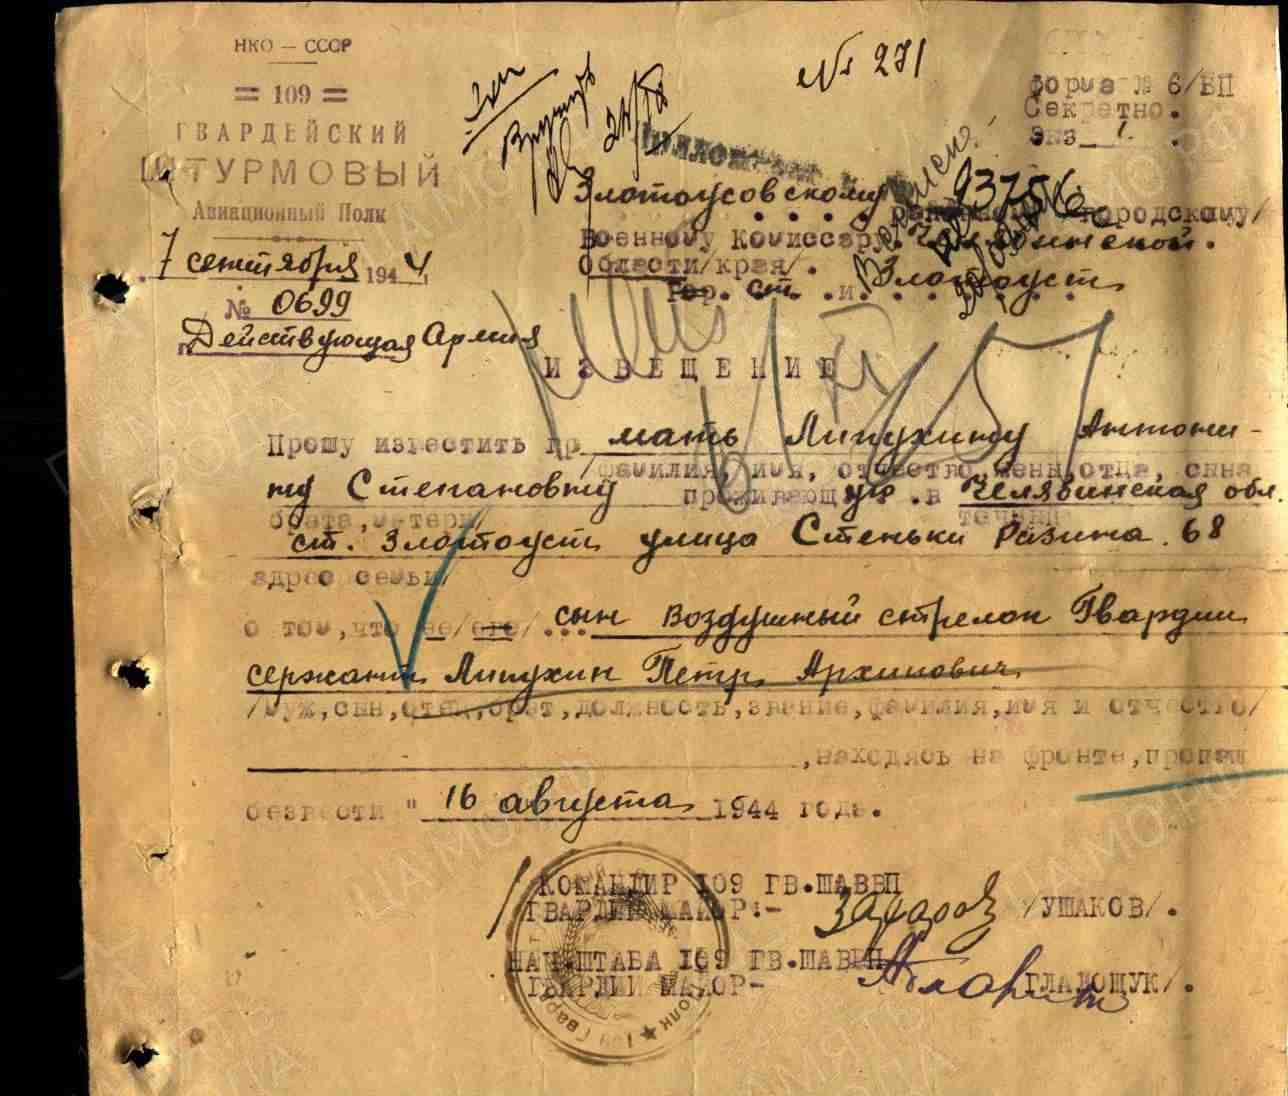 НКО — СССР
= 109 =
ГВАРДЕЙСКИЙ
ШТУРМОВЫЙ
Авиационный Полк
7 сентября 1944
№ 0699
Действующая Армия
№ 271
Вручить
форма № 6/БП
Секретно.
Экз 1.
Златоусовскому городскому/
93756
Военному Комиссару. Челябинской.
Области/края/.
Гор. ст. и. Златоуст
ИЗВЕЩЕНИЕ
Прошу известить гр мать Липухину Антони-
/фамилия, имя, отчество жены, отца, сына
ну Степановну проживающую .в Челябинская обл.
брата, матери/
ст. Златоуст улица Стеньки Разина. 68
адрес семьи/
о том, что ее/его/ ... сын Воздушный стрелок Гвардии
сержант Липухин Петр Архипович
/муж, сын, отец, брат, должность, звание, фамилия, имя и отчество/
, находясь на фронте, пропал
безвести " 16 августа 1944 года.
КОМАНДИР 109 ГВ.ШАВВП
ГВАРДИИ МАЙОР:- /УШАКОВ/.
НАЧ.ШТАБА 109 ГВ.ШАВВП
ГВАРДИИ МАЙОР- ГЛАДОЩУК/.